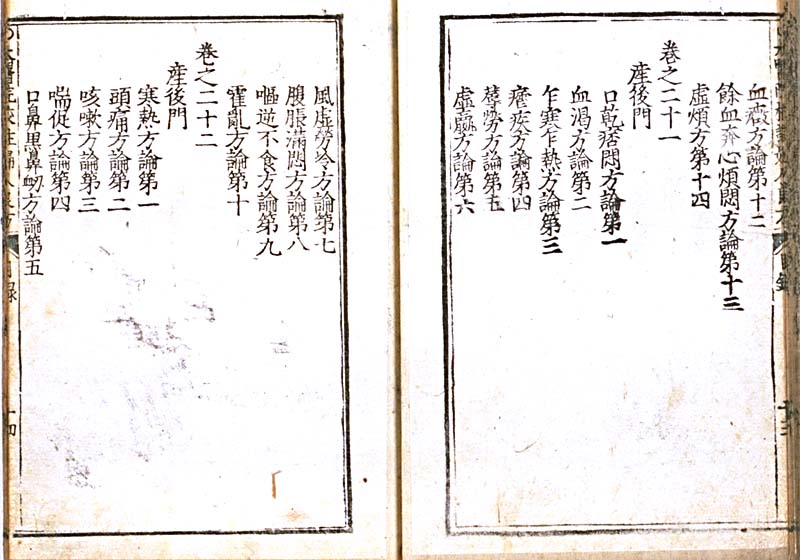 血癥方論第十二
餘血奔心煩悶方論第十三
虛煩方第十四
卷之二十一
産後門
口乾痞悶方論第一
血渴方論第二
乍寒乍熱方論第三
瘧疾方論第四
蓐勞方論第五
虛羸方論第六
風虛勞冷方論第七
腹脹滿悶方論第八
嘔逆不食方論第九
霍亂方論第十
卷之二十二
産後門
寒熱方論第一
頭痛方論第二
咳嗽方論第三
喘促方論第四
口鼻黑鼻衂方論第五
目錄
十四